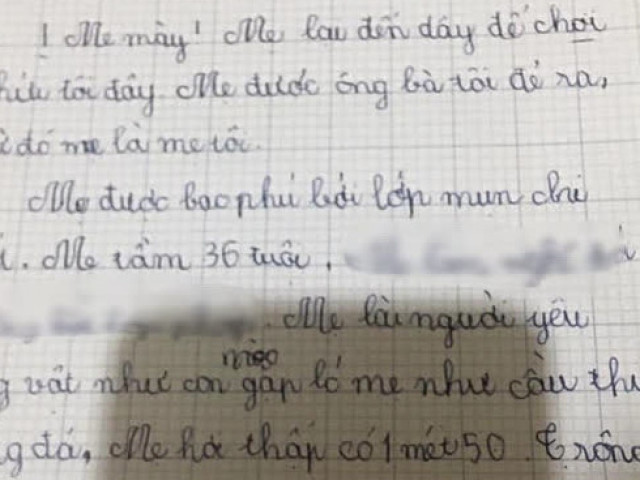 ! Mẹ mày! Mẹ lại đến đây để chơi
tôi đây. Mẹ được ông bà tôi đẻ ra,
đó mẹ là mẹ tôi.
Mẹ được bao phủ bởi lớp mụn chi
. Mẹ tầm 36 tuổi.
. Mẹ là người yêu
mèo
vật như con gặp ló mẹ như cầu thu
g đá, Mẹ hơi thấp có 1 mét 50. Trông